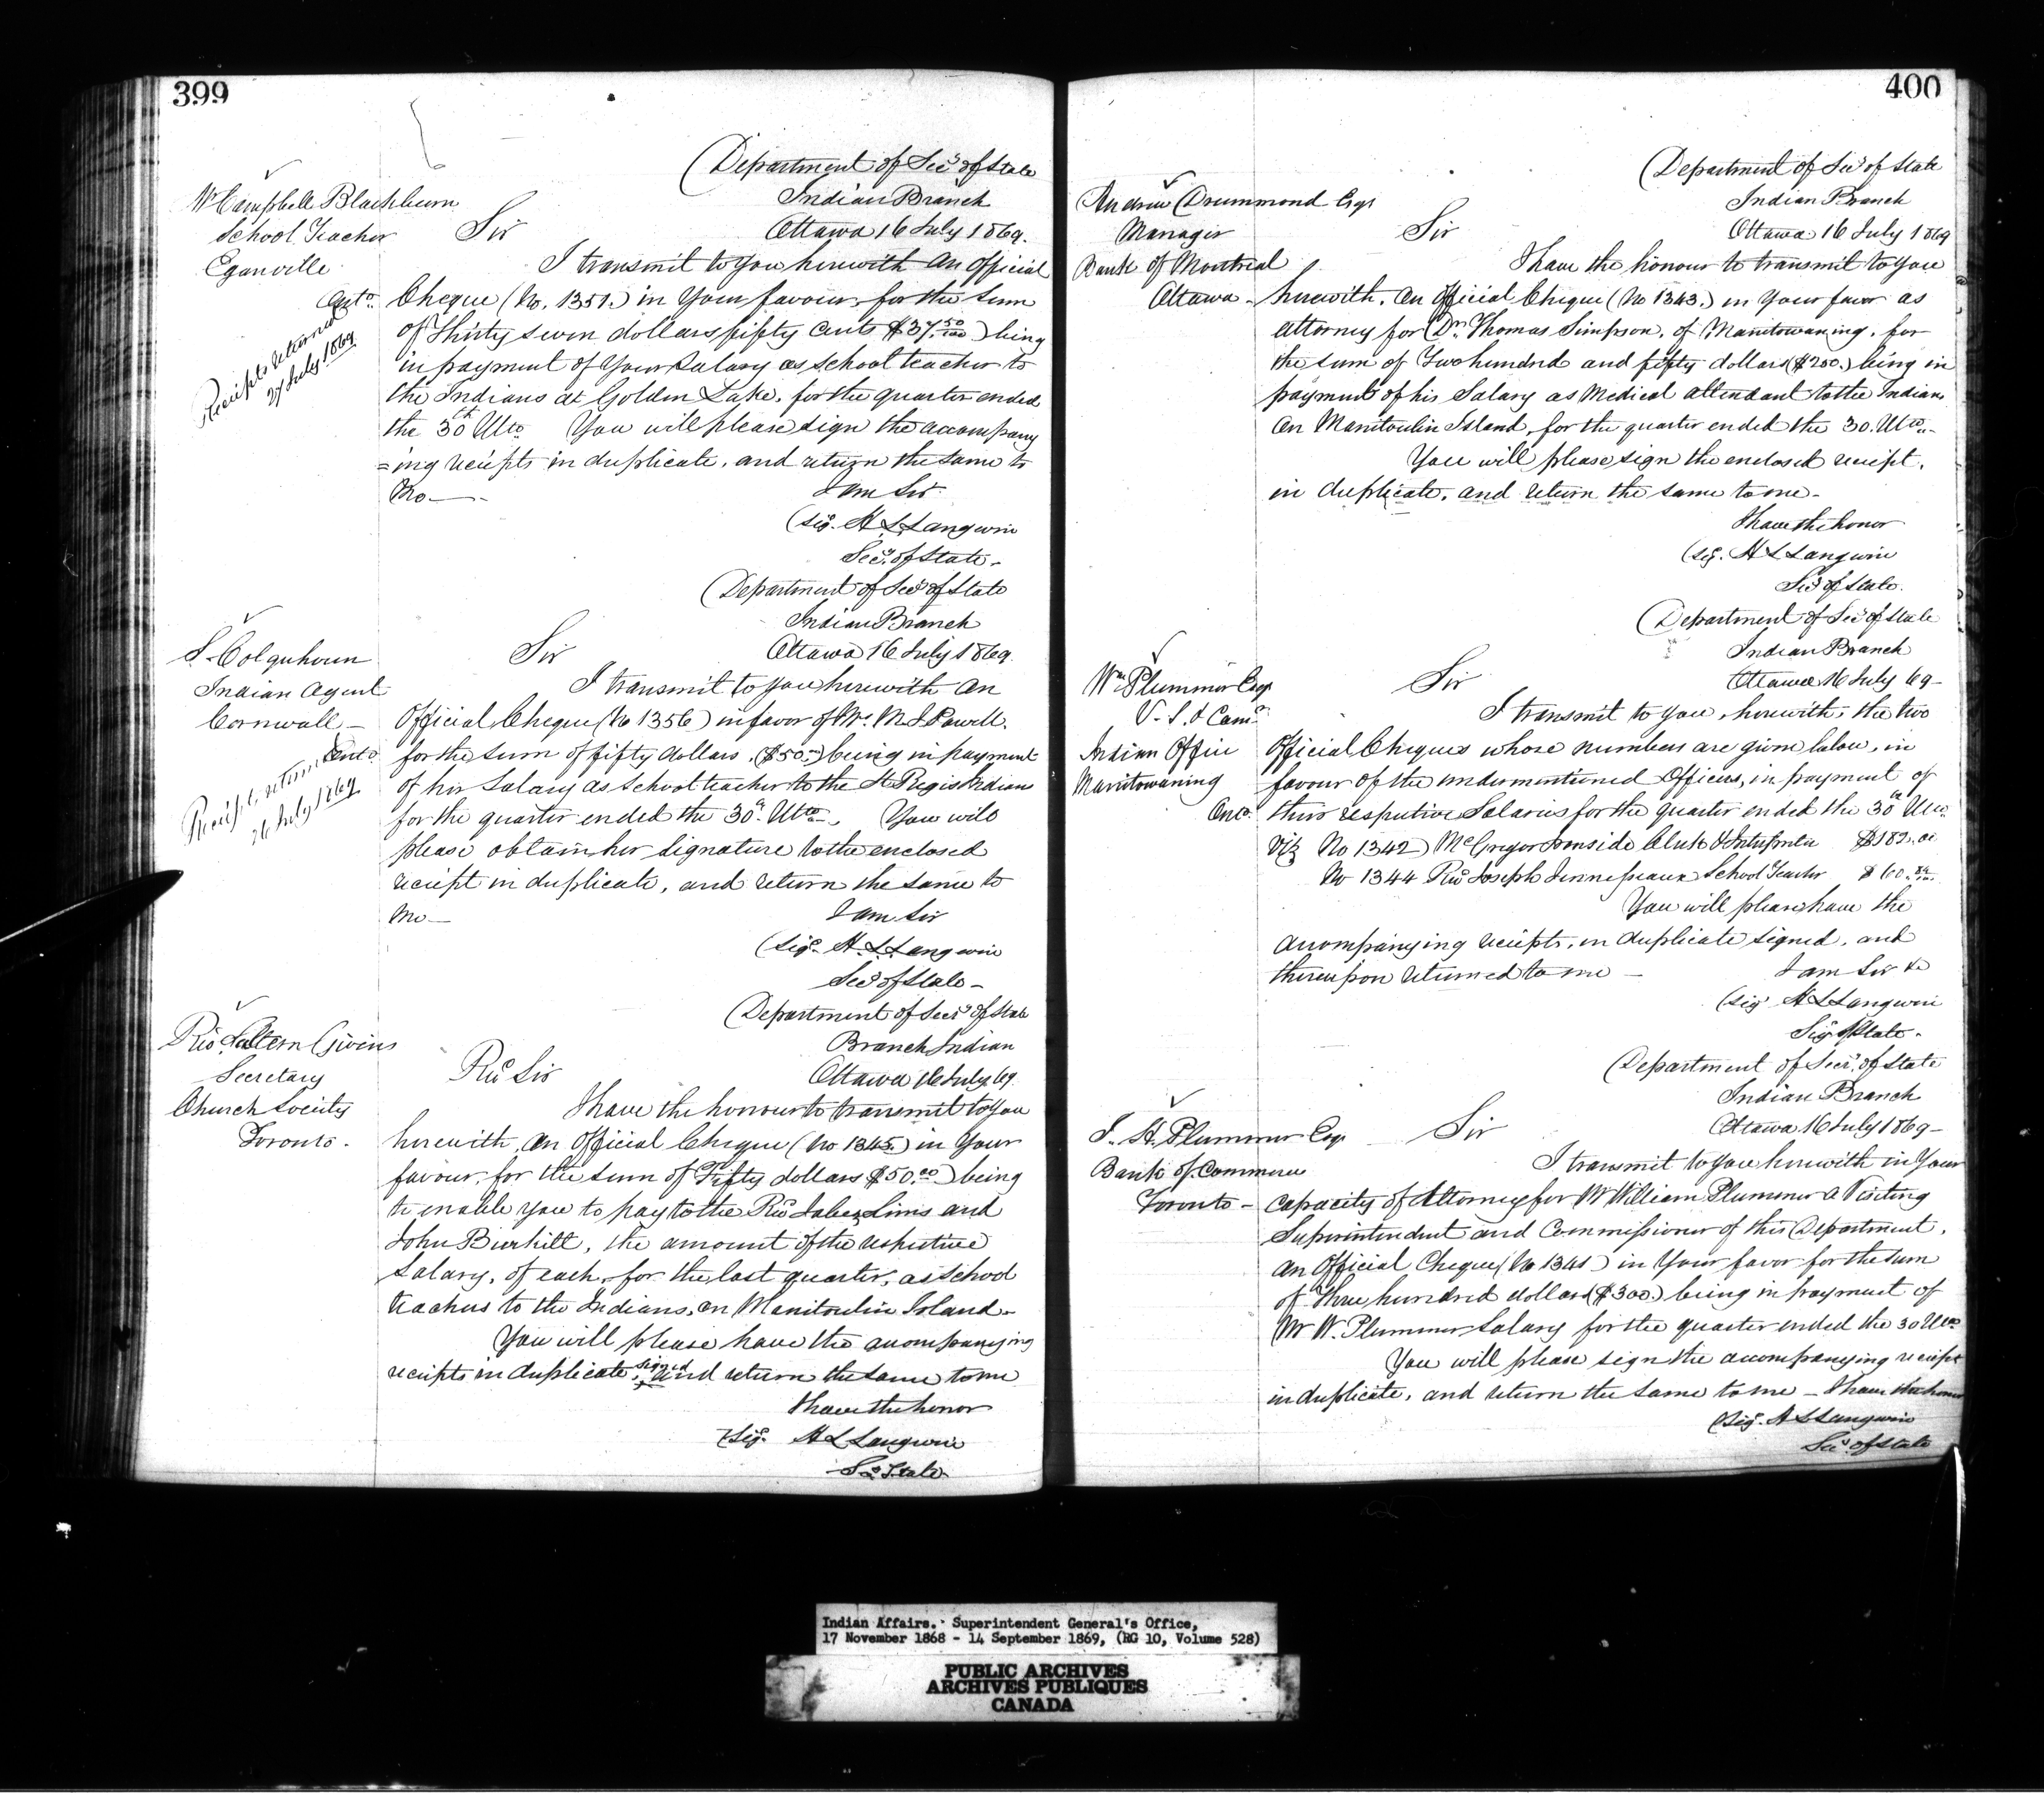 399
Department of Secy of State
Indian Branch
Ottawa 16 July 1869.
Mr Campbell Blackburn
School Teacher
Eganville
Onto.
Receipts returned
27 July 1869
Sir
I transmit to you herewith an Official
Cheque (No. 1351.) in your favour, for the sum
of Thirty seven dollars fifty cents $37.50/100) being
in payment of your Salary as school teacher to
the Indians at Golden Lake, for the quarter ended
the 30th Ulto You will please sign the accompany
=ing receipts in duplicate, and return the same to
Me—
I am Sir
(Sig. H L Langevin
Secy. of State.
Department of Secy of State
Indian Branch
Ottawa 16 July 1869.
S. Colquhoun
Indian Agent
Cornwall —
Onto
Receipt returned
26 July 1869
Sir
I transmit to you herewith an
Official Cheque (No 1356) in favor of Mrs. M. J. Powell.
for the sum of fifty dollars. ($50.—) being in payment
of her Salary as school teacher to the St Regis Indians
for the quarter ended the 30th Ulto—. You will
please obtain her signature to the enclosed
receipt in duplicate, and return the same to
Me—
I am Sir
(Sigd. H. L. Langevin
Secy of State —
Department of Secy of State
Branch Indian
Ottawa 16 July 69.
Revd Saltern Givins
Secretary
Church Society
Toronto.
Revd Sir
I have the honour to transmit to you
herewith, an Official Cheque (No 1345.) in your
favour, for the sum of Fifty dollars $50.00) being
to enable you to pay to the Revd Jabez Sims and
John Burkitt, the amount of the respective
Salary, of each, for the last quarter, as School
teachers to the Indians, on Manitoulin Island.
You will please have the accompanying
receipts in duplicate, signed and return the same to me
I have the honor
(Sigd. H L Langevin
Sec State.
400
Department of Secy of State
Indian Branch
Ottawa 16 July 1869
Andrew Drummond Esqr
Manager
Bank of Montreal
Ottawa.
Sir
I have the honour to transmit to you
herewith, an Official Cheque (No 1343.) in your favor as
attorney for Dr. Thomas Simpson, of Manitowaning, for
the sum of Two hundred and fifty dollars ($250.) being in
payment of his Salary as Medical attendant to the Indians
on Manitoulin Island, for the quarter ended the 30. Ulto.
You will please sign the enclosed receipt,
in duplicate, and return the same to me.
I have the honor
(Sig. H L Langevin
Secy of State.
Department of Secy of State
Indian Branch
Ottawa 16 July 69—
Wm Plummer Esqr
V. S. & Comr
Indian Office
Manitowaning
Onto.
Sir
I transmit to you, herewith, the two
Official Cheques whose numbers are given below, in
favour of the undermentioned Officers, in payment of
their respective Salaries for the quarter ended the 30th Ulto.
Viz No 1342) McGregor Ironside Clerk & Interpreter $182.00
No 1344 Revd Joseph Jennesseaux School Teacher $60.
You will please have the
accompanying receipts, in duplicate signed, and
thereupon returned to me —
I am Sir &c
(Sigd H L Langevin
Secy of State.
Department of Secy. of State
Indian Branch
Ottawa 16 July 1869—
J. H. Plummer Esqr
Bank of Commerce
Toronto —
Sir
I transmit to you herewith in your
Capacity of Attorney for Mr William Plummer a Visiting
Superintendent and Commissioner of this Department,
an Official Cheque (No 1341) in your favor for the sum
of Three hundred dollars ($300.) being in payment of
Mr W. Plummer Salary for the quarter ended the 30 Ulto
You will please sign the accompanying receipt
in duplicate, and return the same to me — I have the honor
(Sigd. H L Langevin
Sec. of State
Indian Affairs. Superintendent General's Office,
17 November 1868 - 14 September 1869, (RG 10, Volume 528)
PUBLIC ARCHIVES
ARCHIVES PUBLIQUES
CANADA